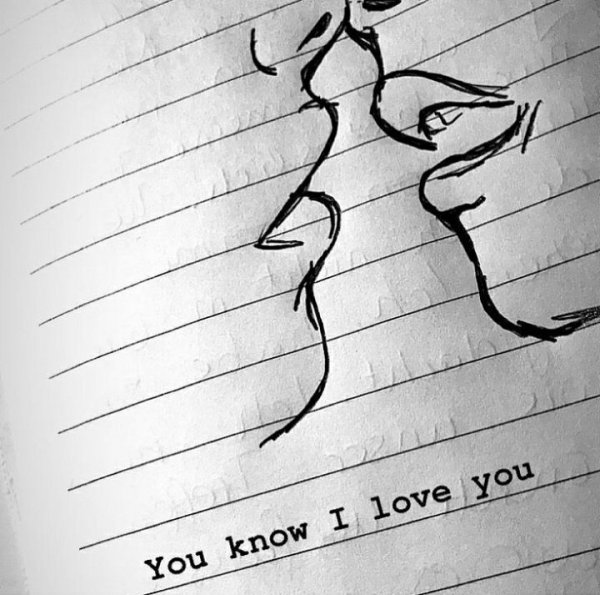 You know I love you